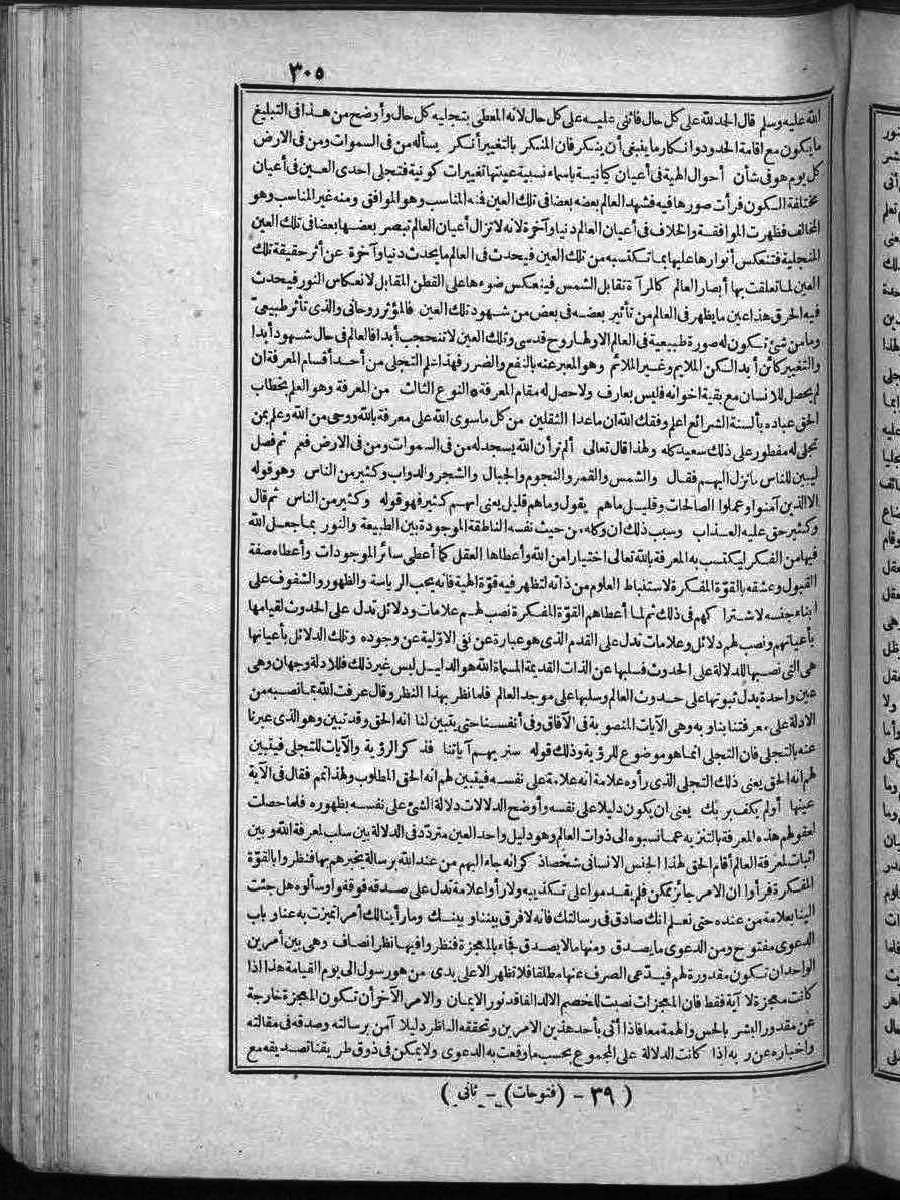 ٣٠٥
الله عليه وسلم قال الحمد لله على كل حال فاثنى عليه على كل حال لانه المعطى بتجليه كل حال وأوضح من هذا فى التبليغ
ما يكون مع اقامة الحدود وانكار ما ينبغى أن ينكر فان المنكر بالتغيير أنكر يسأله من فى السموات ومن فى الارض
كل يوم هو فى شأن أحوال الهية فى أعيان كيانية باسماء نسبية عينتها تغييرات كونية فتجلى احدى العين فى أعيان
مختلفة الكون فرأت صورها فيه فشهد العالم بعضه بعضا فى تلك العين فمنه المناسب وهو الموافق ومنه غير المناسب وهو
المخالف فظهرت الموافقة والخلاف فى أعيان العالم دنيا وآخرة لانه لا تزال أعيان العالم تبصر بعضها بعضا فى تلك العين
المتجلية فتنعكس أنوارها عليها بما تكتسبه من تلك العين فيحدث فى العالم ما يحدث دنيا وآخرة عن أثر حقيقة تلك
العين لما تعلقت بها أبصار العالم كالمرآة تقابل الشمس فينعكس ضوءها على القطن المقابل لانعكاس النور فيحدث
فيه الحرق هذا عين ما يظهر فى العالم من تأثير بعضه فى بعض من شهود تلك العين فالمؤثر روحانى والذى تأثر طبيعىّ
وما من شئ تكون له صورة طبيعية فى العالم الا ولها روح قدسى وتلك العين لا تنحجب أبدا فالعالم فى حال شهود أبدا
والتغيير كائن أبدا لكن الملايم وغير الملائم وهو المعبر عنه بالنفع والضرر فهذا علم التجلى من أحد أقسام المعرفة ان
لم يحصل للانسان مع بقية اخوانه فليس بعارف ولا حصل له مقام المعرفة * النوع الثالث من المعرفة وهو العلم بخطاب
الحق عباده بألسنة الشرائع اعلم وفقك الله ان ما عدا الثقلين من كل ما سوى الله على معرفة بالله ووحى من الله وعلم بمن
تجلى له مفطور على ذلك سعيد كله ولهذا قال تعالى ألم تر أن الله يسجد له من فى السموات ومن فى الارض فعم ثم فصل
ليبين للناس ما نزل اليهم فقال والشمس والقمر والنجوم والجبال والشجر والدواب وكثير من الناس وهو قوله
الا الذين آمنوا وعملوا الصالحات وقليل ما هم يقول وما هم قليل يعنى انهم كثير فهو قوله وكثير من الناس ثم قال
وكثير حق عليه العذاب وسبب ذلك ان وكله من حيث نفسه الناطقة الموجودة بين الطبيعة والنور بما جعل الله
فيها من الفكر ليكتسب به المعرفة بالله تعالى اختبارا من الله وأعطاها العقل كما أعطى سائر الموجودات وأعطاه صفة
القبول وعشقه بالقوّة المفكرة لاستنباط العلوم من ذاته لتظهر فيه قوّة الهية فانه يحب الرياسة والظهور والشفوف على
أبناء جنسه لاشتراكهم فى ذلك ثم لما أعطاهم القوّة المفكرة نصب لهم علامات ودلائل تدل على الحدوث لقيامها
بأعيانهم ونصب لهم دلائل وعلامات تدل على القدم الذى هو عبارة عن نفى الاوّلية عن وجوده وتلك الدلائل بأعيانها
هى التى نصبها للدلالة على الحدوث فسلبها عن الذات القديمة المسماة الله هو الدليل ليس غير ذلك فللادلة وجهان وهى
عين واحدة يدل ثبوتها على حدوث العالم وسلبها على موجد العالم فلما نظر بهذا النظر وقال عرفت الله بما نصبه من
الادلة على معرفتنا بنا وبه وهى الآيات المنصوبة فى الآفاق وفى أنفسنا حتى يتبين لنا انه الحق وقد تبين وهو الذى عبرنا
عنه بالتجلى فان التجلى انما هو موضوع للرؤية وذلك قوله سنريهم آياتنا فذكر الرؤية والآيات للتجلى فيتبين
لهم انه الحق يعنى ذلك التجلى الذى رأوه علامة انه علامة على نفسه فيتبين لهم انه الحق المطلوب ولهذا تمم فقال فى الآية
عينها أولم يكف بربك يعنى ان يكون دليلا على نفسه وأوضح الدلالات دلالة الشئ على نفسه بظهوره فلما حصلت
لعقولهم هذه المعرفة بالتنزيه عما نسبوه الى ذوات العالم وهو دليل واحد العين متردّد فى الدلالة بين سلب لمعرفة الله وبين
اثبات لمعرفة العالم أقام الحق لهذا الجنس الانسانى شخصا ذكر انه جاء اليهم من عند الله برسالة يخبرهم بها فنظروا بالقوّة
المفكرة فرأوا ان الامر جائز ممكن فلم يقدموا على تكذيبه ولا رأوا علامة تدل على صدقه فوقفوا وسألوه هل جئت
الينا بعلامة من عنده حتى نعلم انك صادق فى رسالتك فانه لا فرق بيننا وبينك وما رأينا لك أمرا تميزت به عنا وباب
الدعوى مفتوح ومن الدعوى ما يصدق ومنها ما لا يصدق فجاء بالمعجزة فنظروا فيها نظر انصاف وهى بين أمرين
الواحد ان تكون مقدورة لهم فيدّعى الصرف عنها مطلقا فلا تظهر الا على يدى من هو رسول الى يوم القيامة هذا اذا
كانت معجزة لا آية فقط فان المعجزات نصبت للخصم الالد الفاقد نور الايمان والامر الآخر أن تكون المعجزة خارجة
عن مقدور البشر بالحس والهمة معا فاذا أتى بأحد هذين الامرين وتحققه الناظر دليلا آمن برسالته وصدقه فى مقالته
واخباره عن ربه اذا كانت الدلالة على المجموع بحسب ما وقعت به الدعوى ولا يمكن فى ذوق طريقنا تصديقه مع
( ٣٩ - (فتوحات) - ثانى )